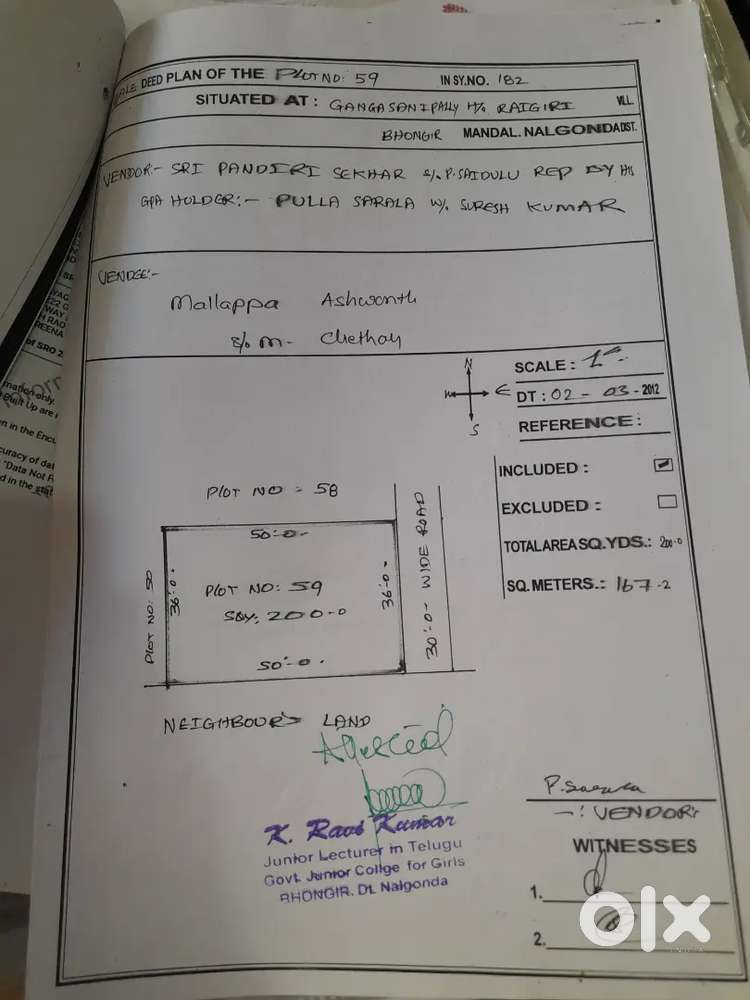 SALE DEED PLAN OF THE PLOT NO: 59 IN SY.NO. 182
SITUATED AT : GANGASANIPALLY H/o RAIGIRI VILL.
BHONGIR MANDAL. NALGONDA DIST.
VENDOR:- SRI PANDIRI SEKHAR S/o. P. SAIDULU REP BY HIS
GPA HOLDER:- PULLA SARALA W/o. SURESH KUMAR
VENDEE:-
Mallappa Ashwanth
S/o M.
N
W E
S
SCALE : 1"
DT : 02 - 03 - 2012
REFERENCE :
INCLUDED :
EXCLUDED :
TOTAL AREA SQ.YDS.: 200-0
SQ. METERS.: 167-2
PLOT NO = 58
50'-0
PLOT NO: 50
36'-0
PLOT NO: 59
SQY: 200-0
36'-0
30'-0 WIDE ROAD
50'-0
NEIGHBOUR'S LAND
Attested
K. Ravi Kumar
Junior Lecturer in Telugu
Govt. Junior Collge for Girls
BHONGIR. Dt. Nalgonda
P. Sarala
-: VENDOR:
WITNESSES
1.
2.
olx
of SRO 2
mation only.
Built Up are
n in the Encu
curacy of dat
"Data Not F
d in the